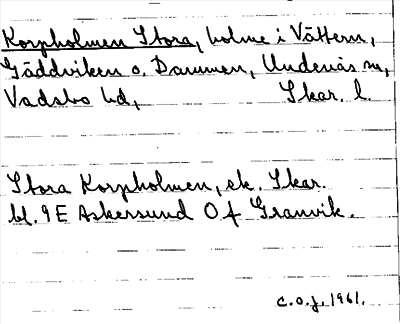 Korpholmen Stora, holme i Vättern,
Gäddviken o. Dammen, Undenäs sn,
Vadsbo hd, Skar. l.
Stora Korpholmen, ek. Skar.
bl. 9E Askersund Of Granvik.
C.O.J. 1961.